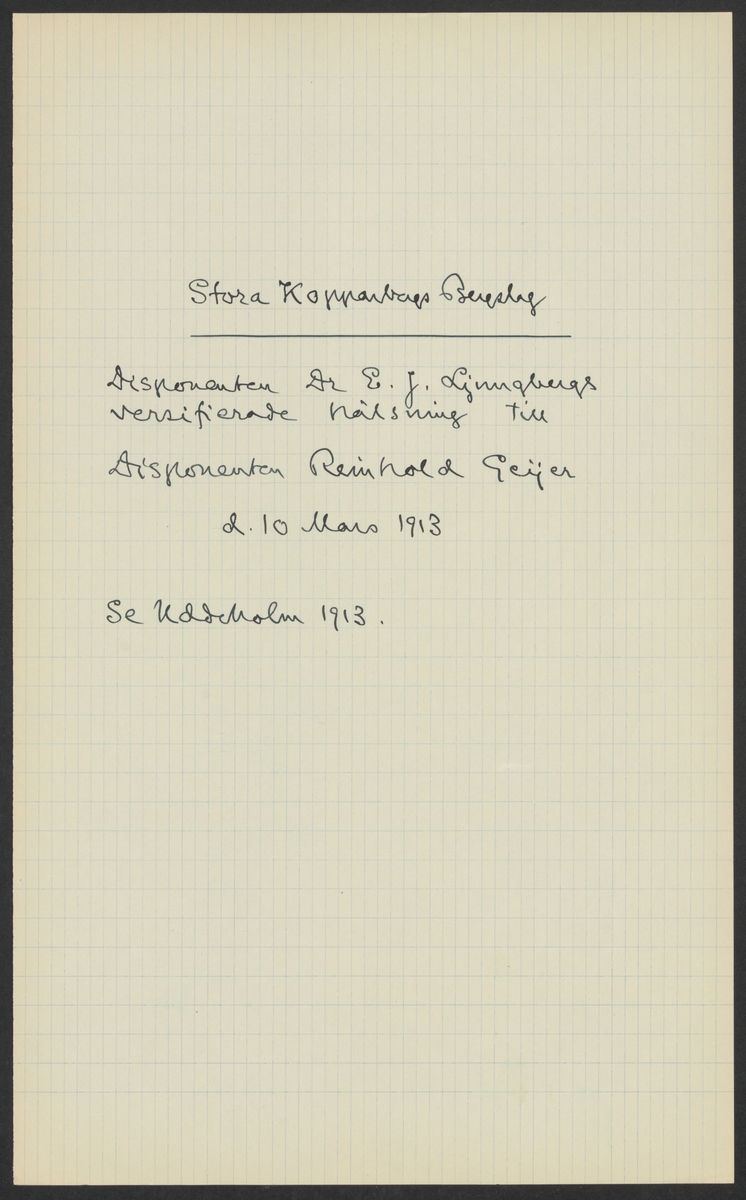 Stora Kopparbergs Bergslag
Disponenten Dr E. J. Ljungbergs
versifierade hälsning till
Disponenten Reinhold Geijer
d. 10 Mars 1913
Se Uddeholm 1913.